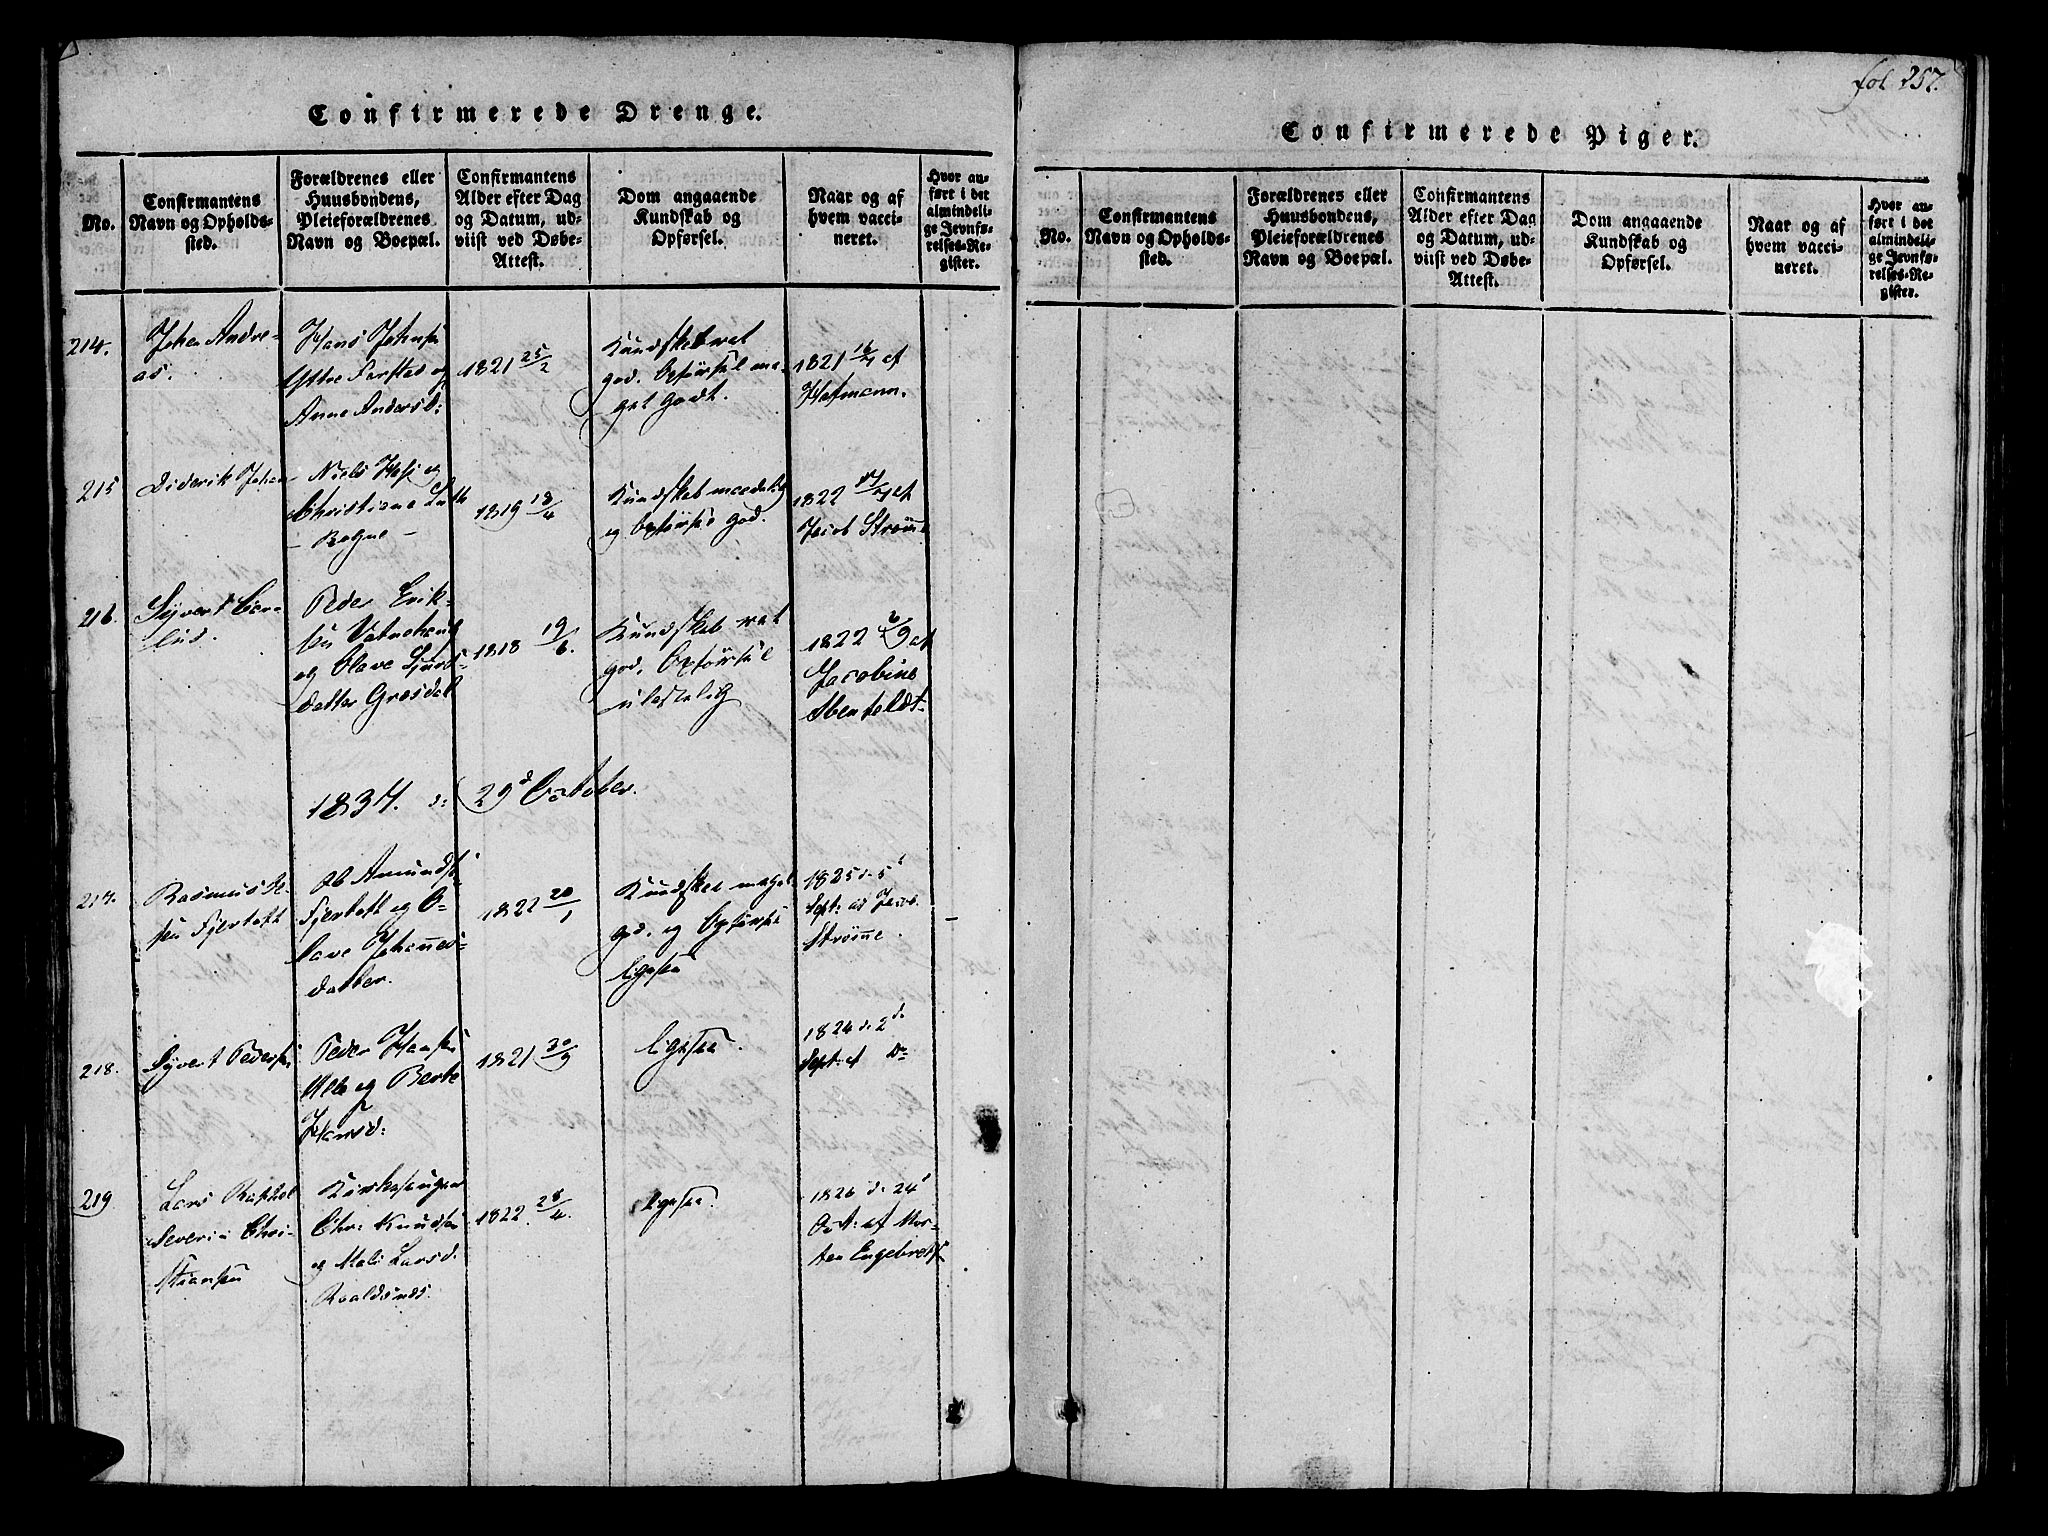 fol 257.
Confirmerede Drenge.
No.
Confirmantens
Navn og Opholds-
sted.
Forældrenes eller
Huusbondens,
Pleieforældrenes
Navn og Boepæl.
Confirmantens
Alder efter Dag
og Datum, ud-
viist ved Døbe-
Attest.
Dom angaaende
Kundskab og
Opførsel.
Naar og af
hvem vacci-
neret.
Hvor an-
ført i det
almindeli-
ge Jevnfø-
relses-Re-
gister.
214.
Johan Andre-
as.
Hans Johnsen
Yttre Farstad og
Anne Andersd:
1821 25/2
Kundskab ret
god. Opførsel me-
get godt.
1821 16/7 af
Hofmann.
215
Diderik Johan
Niels Hess og
Christiane
- Rogne -
1819 18/4
Kundskab maadelig
og Opførsel god.
1822 af
Jacob Strømme
216.
Syvert
Peder Erik-
sen
og Olave Sjurds-
datter Grøsdal
1818 19/6.
Kundskab ret
god. Opførsel
ulastelig
1822 af
Jacobine
1837. d: 29d October.
217.
Rasmus
sen Fjertoft
Ole Amunds.
Fjertoft og O-
lave Johannes-
datter.
1822 20/1
Kundskab meget
god. og Opførsel
ligesaa
1825 d. 5t
Sept: af Jacob
Strømme.
218.
Syvert Pedersen
Peder Hansen
Ulla og Berte
Hansd:
1821 30/9
ligesaa.
1824 d. 2d
Sept: af Do
219
Lars
Severin Chri-
stiansen
Kirkesanger
Chr: Knudsen
og Mali Larsd.
Roaldsnæs.
1822. 28/4.
ligesaa.
1826 d. 24t
Oct: af Mor-
ten Engebrets.
Confirmerede Piger.
No.
Confirmantens
Navn og Opholds-
sted.
Forældrenes eller
Huusbondens,
Pleieforældrenes
Navn og Boepæl.
Confirmantens
Alder efter Dag
og Datum, ud-
viist ved Døbe-
Attest.
Dom angaaende
Kundskab og
Opførsel.
Naar og af
hvem vacci-
neret.
Hvor an-
ført i det
almindeli-
ge Jevnfø-
relses-Re-
gister.